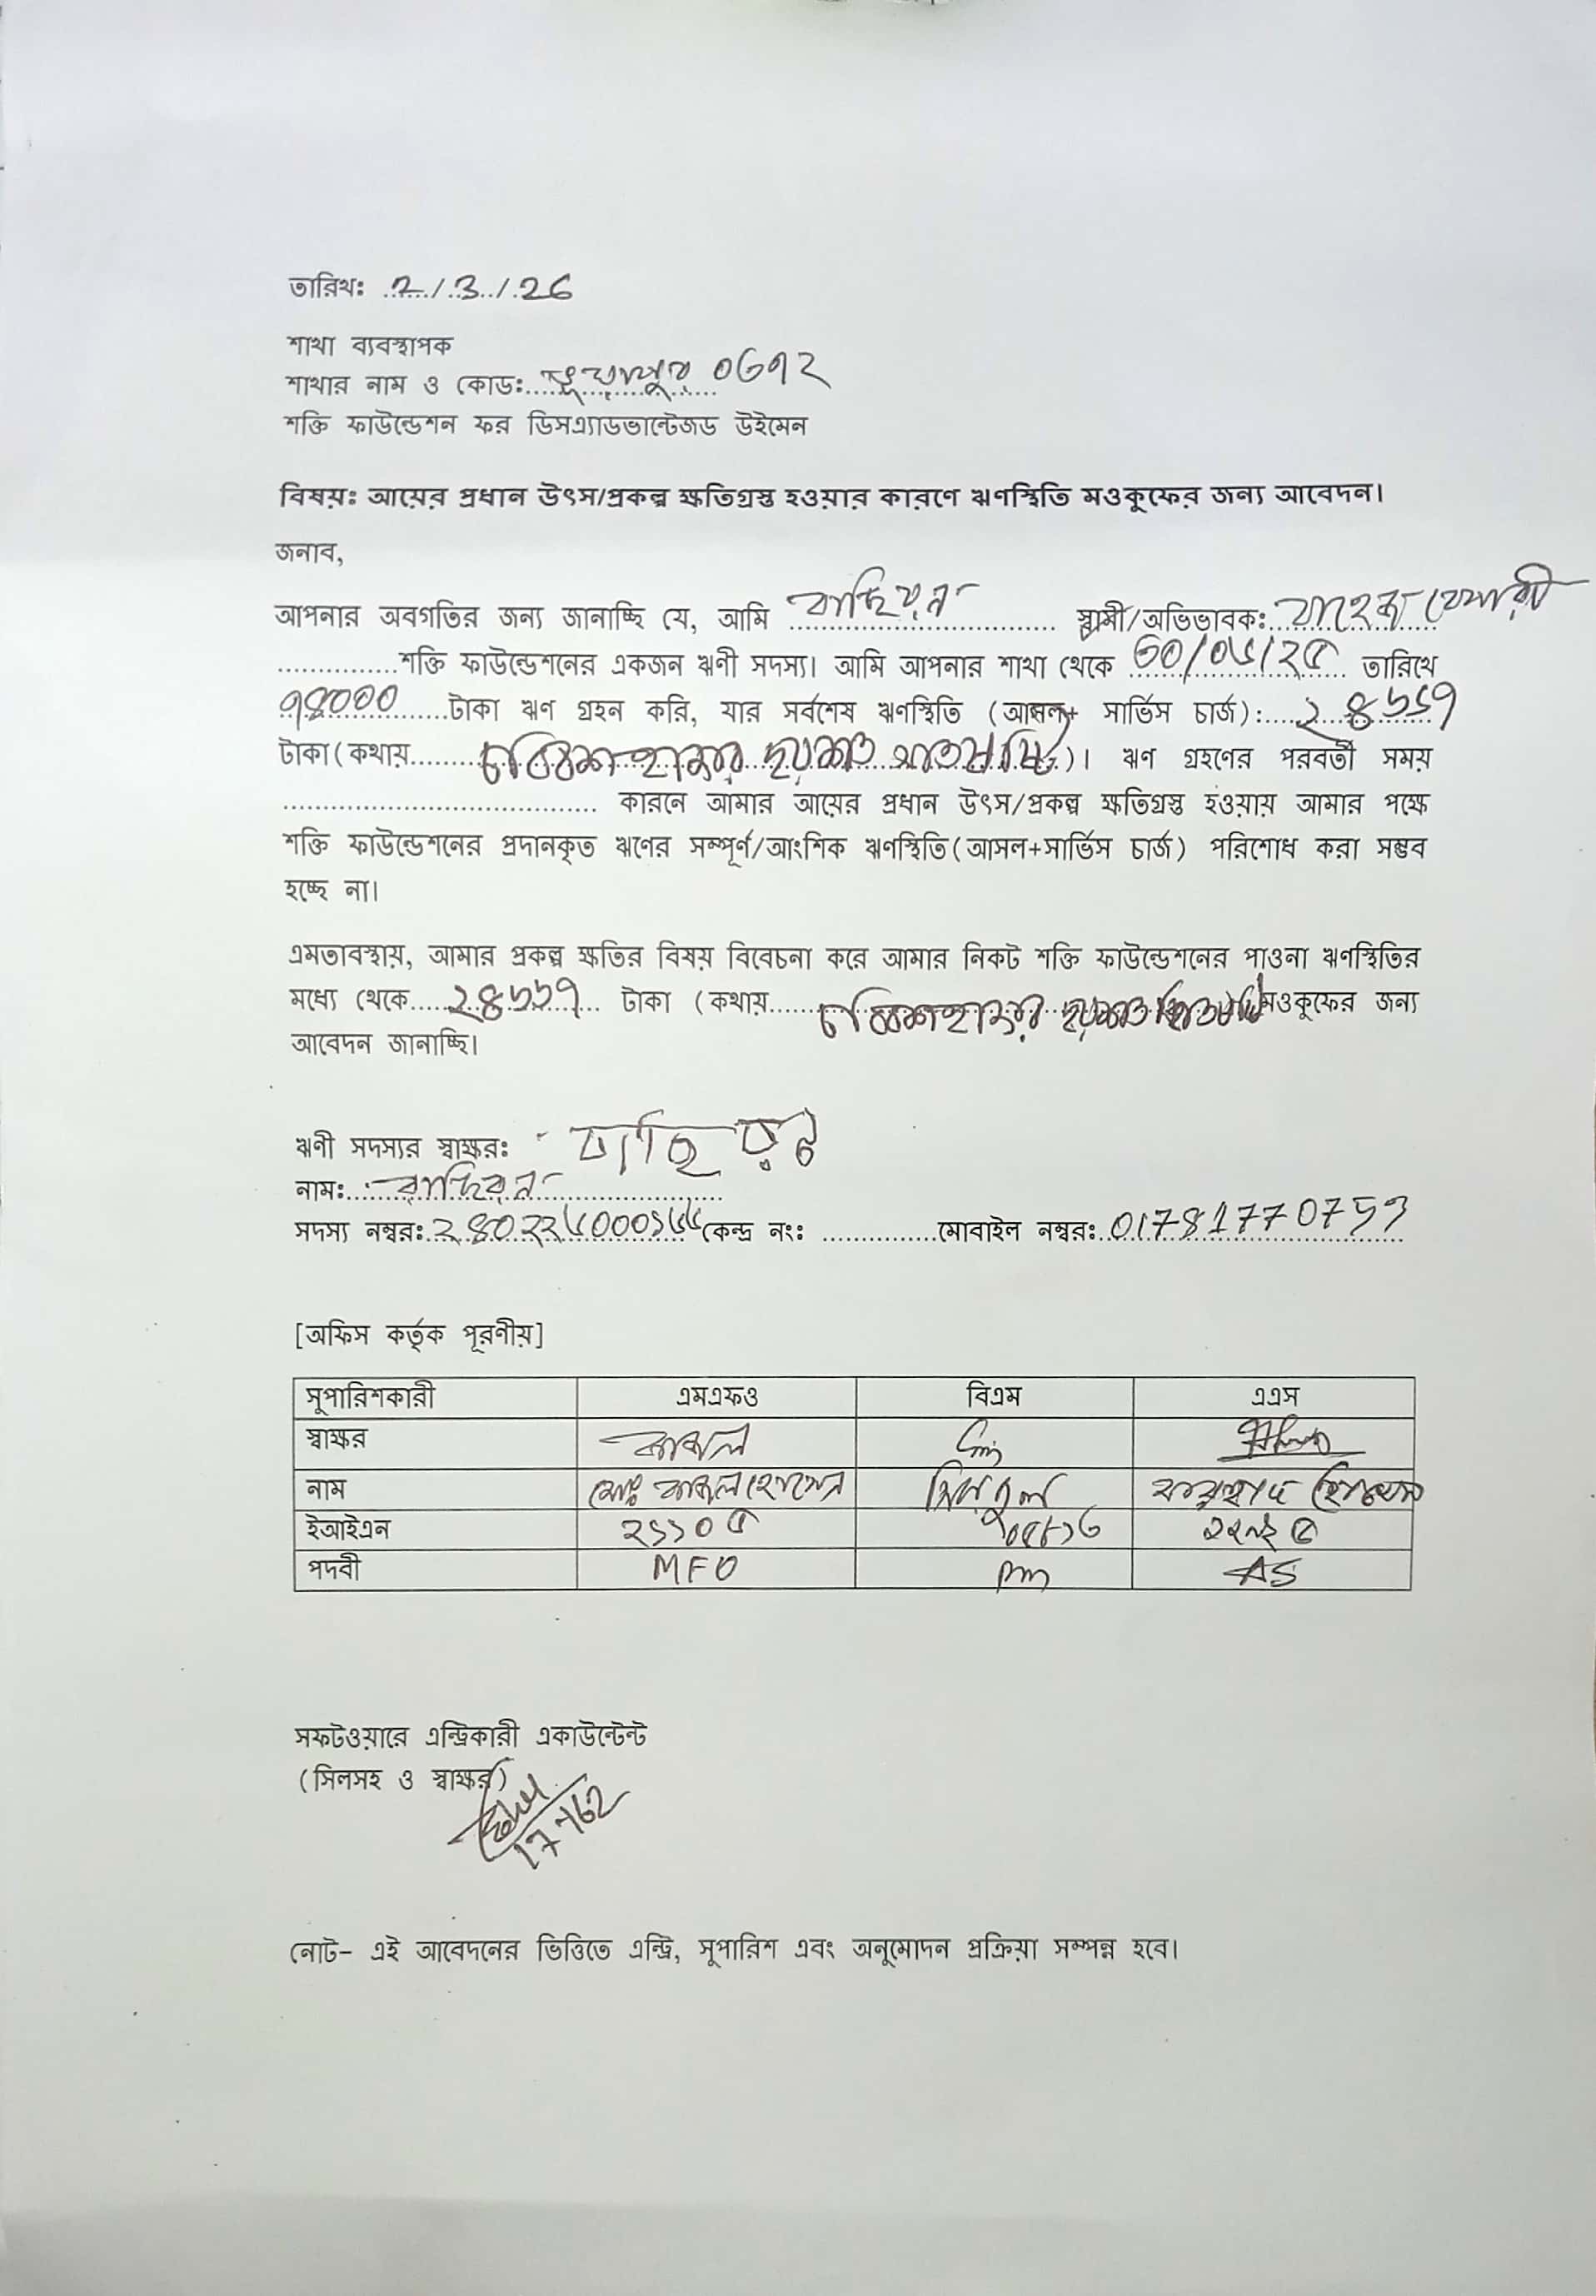 তারিখঃ 2/3/26
শাখা ব্যবস্থাপক
শাখার নাম ও কোডঃ ভূয়াপুর ০৬৭২
শক্তি ফাউন্ডেশন ফর ডিসএ্যাডভান্টেজড উইমেন
বিষয়ঃ আয়ের প্রধান উৎস/প্রকল্প ক্ষতিগ্রস্ত হওয়ার কারণে ঋণস্থিতি মওকুফের জন্য আবেদন।
জনাব,
আপনার অবগতির জন্য জানাচ্ছি যে, আমি বাছিরন স্বামী/অভিভাবক:
শক্তি ফাউন্ডেশনের একজন ঋণী সদস্য। আমি আপনার শাখা থেকে তারিখে
৭৪০০০ টাকা ঋণ গ্রহন করি, যার সর্বশেষ ঋণস্থিতি (আসল+ সার্ভিস চার্জ):
টাকা(কথায় চব্বিশ হাজার ছয়শত সাতষট্টি)। ঋণ গ্রহণের পরবর্তী সময়
কারনে আমার আয়ের প্রধান উৎস/প্রকল্প ক্ষতিগ্রস্ত হওয়ায় আমার পক্ষে
শক্তি ফাউন্ডেশনের প্রদানকৃত ঋণের সম্পূর্ণ/আংশিক ঋণস্থিতি(আসল+সার্ভিস চার্জ) পরিশোধ করা সম্ভব
হচ্ছে না।
এমতাবস্থায়, আমার প্রকল্প ক্ষতির বিষয় বিবেচনা করে আমার নিকট শক্তি ফাউন্ডেশনের পাওনা ঋণস্থিতির
মধ্যে থেকে টাকা (কথায় চব্বিশ হাজার ছয়শত মওকুফের জন্য
আবেদন জানাচ্ছি।
ঋণী সদস্যর স্বাক্ষরঃ বাছিরন
নামঃ বাছিরন
সদস্য নম্বরঃ কেন্দ্র নংঃ মোবাইল নম্বরঃ
[অফিস কর্তৃক পূরণীয়]
সুপারিশকারী এমএফও বিএম এএস
স্বাক্ষর কাজল
নাম মোঃ কাজল হোসেন ফরহাদ হোসেন
ইআইএন ২১১০৫
পদবী MFO AS
সফটওয়ারে এন্ট্রিকারী একাউন্টেন্ট
(সিলসহ ও স্বাক্ষর)
17762
নোট- এই আবেদনের ভিত্তিতে এন্ট্রি, সুপারিশ এবং অনুমোদন প্রক্রিয়া সম্পন্ন হবে।